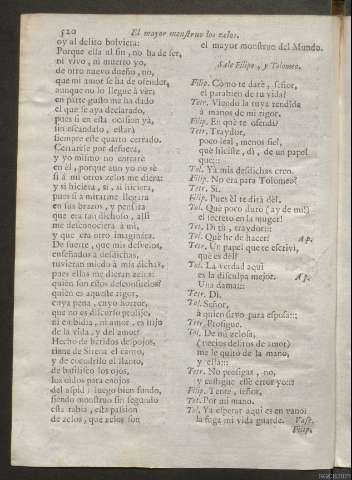 520 El mayor monstruo los zelos.
oy al delito bolviera:
Porque essa al fin, no ha de ser,
ni vivo, ni muerto yo,
de otro nuevo dueño, no,
que mi amor se ha de ofender,
aunque no lo llegue à vèr:
en parte gusto me ha dado
el que se aya declarado,
pues si en esta ocasion ya,
sin escandalo, estarà
siempre este quarto cerrado.
Cerrarèle por defuera,
y yo mismo no entrarè
en èl, porque aun yo no sè
si à mi otros zelos me diera:
y si hiciera, si, si hiciera,
pues si à mirarme llegàra
en sus brazos, y pensàra
que era tan dichoso, alli
me desconociera à mi,
y que era otro imaginàra.
De suerte, que mis desvelos,
enseñados à desdichas,
tuvieran miedo à mis dichas,
pues ellas me dieran zelos:
quien son estos desconsuelos?
quien es aqueste rigor,
cuya pena, cuyo horror,
que no es discurso prolijo,
ni embidia, ni amor, es hijo
de la vida, y del amor?
Hecho de heridos despojos,
tiene de Sirena el canto,
y de cocodrilo el llanto,
de basilisco los ojos,
los oidos para enojos
del aspid; luego bien fundo,
siendo monstruo sin segundo
esta rabia, esta passion
de zelos, que zelos son
el mayor monstruo del Mundo.
Sale Filipo, y Tolomeo.
Filip. Còmo te darè, señor,
el parabien de tu vida?
Tetr. Viendo la tuya rendida
à manos de mi rigor.
Filip. En què te ofendi?
Tetr. Traydor,
poco leal, menos fiel,
què hiciste, dì, de un papel
que:::
Tol. Ya mis desdichas creo.
Filip. No era para Tolomeo?
Tetr. Si.
Filip. Pues èl te dirà dèl.
Tol. Què poco durò (ay de mi!)
el secreto en la muger!
Tetr. Dì tù, traydor:::
Tol. Què he de hacer? Ap.
Tetr. Un papel que te escrivì,
què es dèl?
Tol. La verdad aqui
es la disculpa mejor. Ap.
Una dama:::
Tetr. Dì.
Tol. Señor,
à quien sirvo para esposa:::
Tetr. Prosigue.
Tol. De mi zelosa,
(necios delitos de amor)
me le quitò de la mano,
y ella:::
Tetr. No prosigas, no,
y castigue esse error yo:::
Filip. Tente, señor.
Tet. Por mi mano.
Tol. Ya esperar aqui es en vano:
la fuga mi vida guarde. Vase.
Filip.